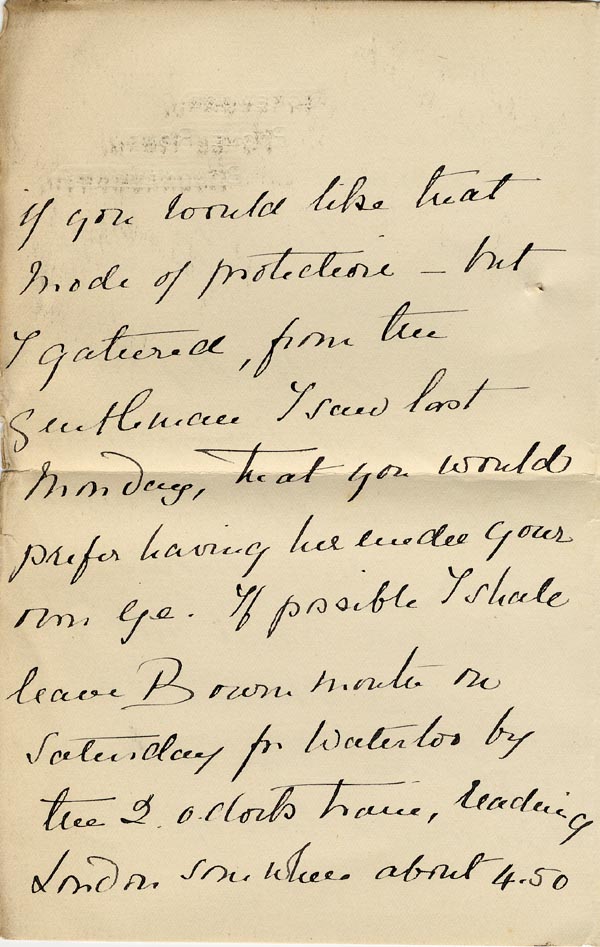 if you would like that
mode of protection – but
I gathered, from the
gentleman I saw last
Monday, that you would
prefer having her under your
own eye. If possible I shall
leave Bournmouth on
Saturday for Waterloo by
the 2. o'clock train, reaching
London somewhere about 4.50